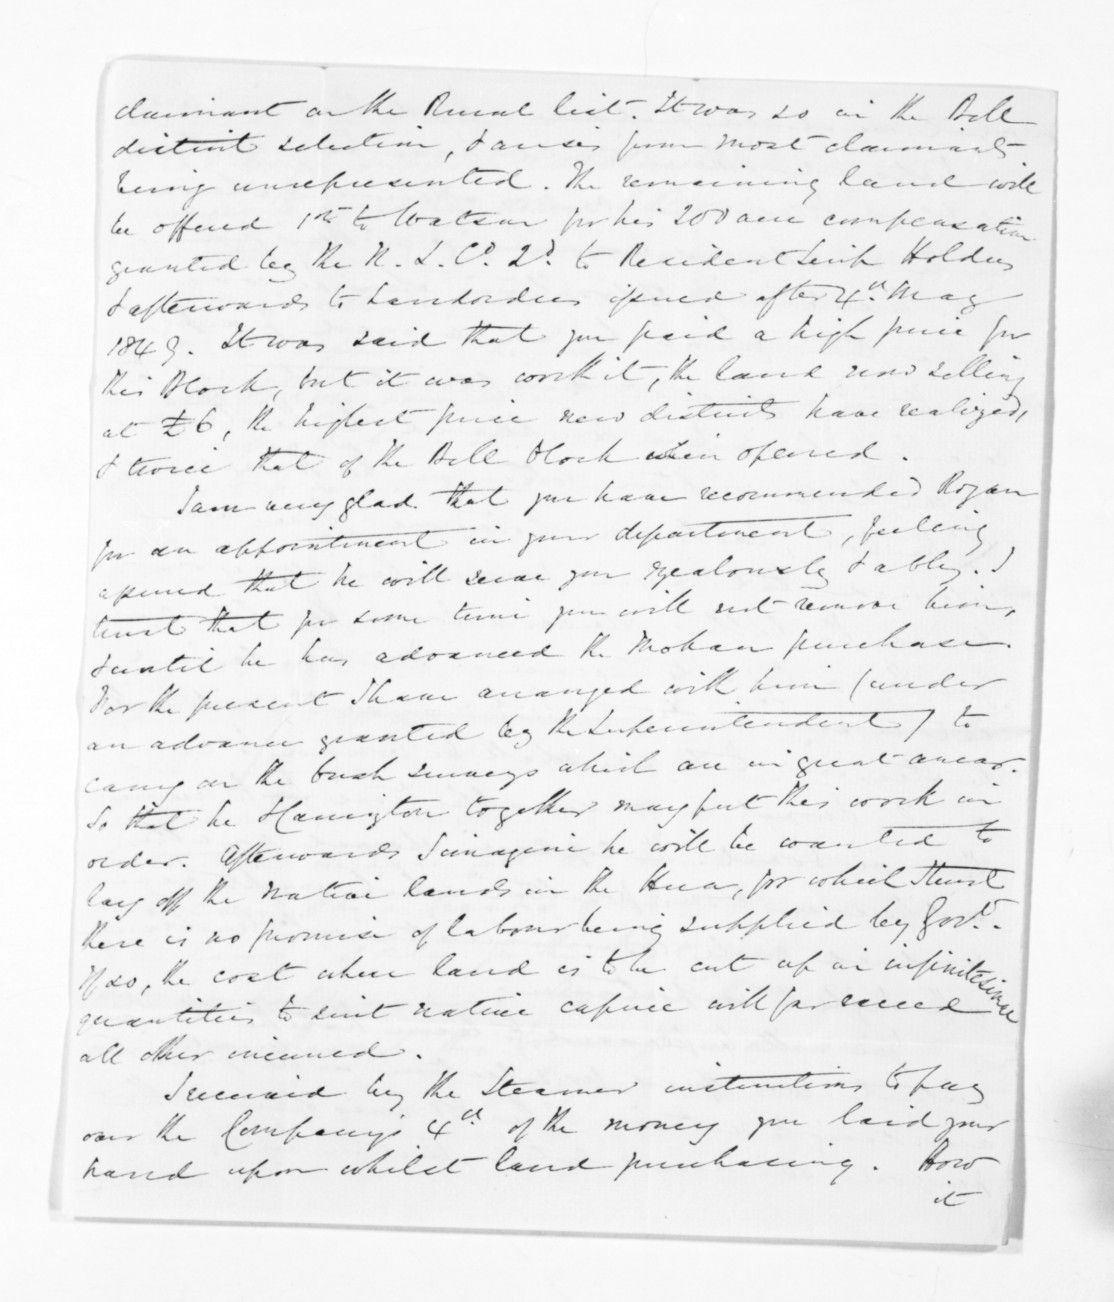 claimant on the Rural list. It was so in the Bell
district selection, & arises from most claimants
being unrepresented. The remaining land will
be offered 1st to Watson for his 200 acre compensation
granted by the N. Z. Co. 2d. to Resident Scrip Holders
& afterwards to Landorders issued after 4th. May
1849. It was said that you paid a high price for
this Block, but it was worth it, the land now selling
at £6, the highest price new districts have realized,
& twice that of the Bell Block when opened.
I am very glad that you have recommended Rogan
for an appointment in your department, feeling
assured that he will serve you zealously & ably. I
trust that for some time you will not remove him,
& until he has advanced the Mokau purchase.
For the present I have arranged with him (under
an advance granted by the Superintendent) to
carry on the bush surveys which are in great arrear.
So that he & Carrington together may put this work in
order. Afterwards I imagine he will be wanted to
lay off the native lands in the Hua, for which I trust
there is no promise of labour being supplied by Govt.
If so, the cost when land is to be cut up in infinitesimal
quantities to suit native caprice will far exceed
all other incurred.
I received by the Steamer instructions to pay
over the Company's 4th of the money you laid your
hand upon whilst land purchasing. How
it